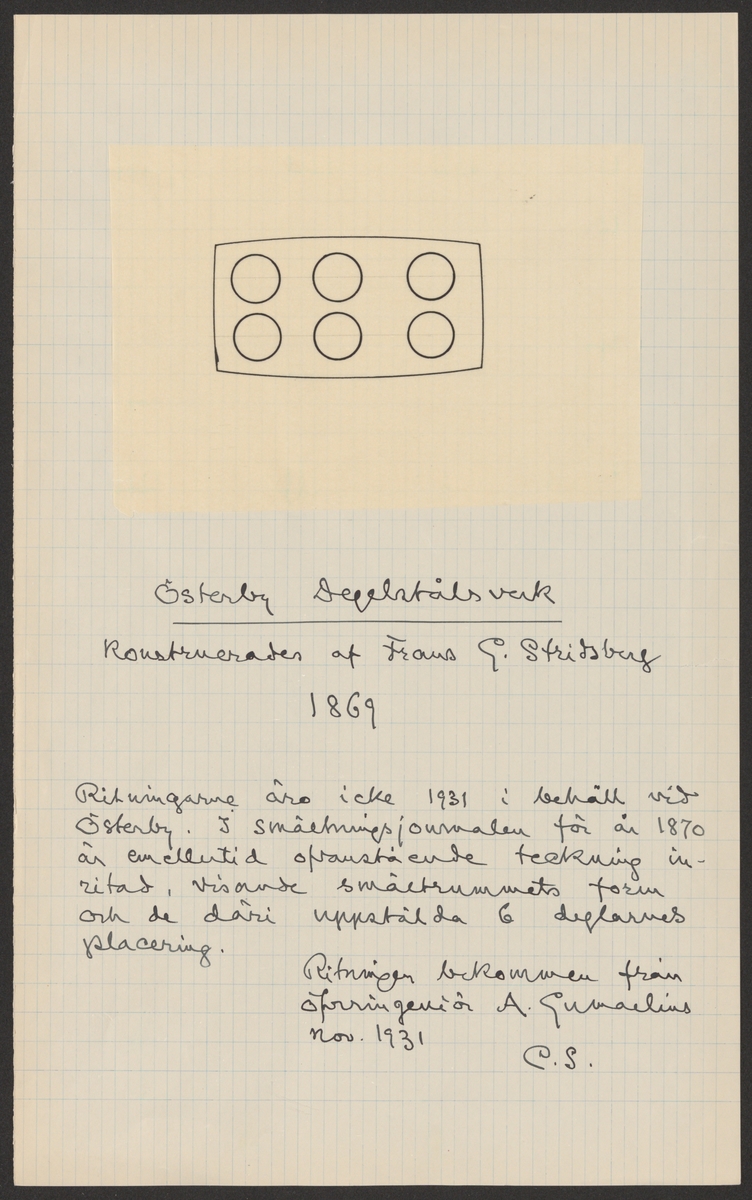 Österby Degelstålsverk
Konstruerades af Frans G. Stridsberg
1869
Ritningarne äro icke 1931 i behåll vid
Österby. I smältningsjournalen för år 1870
är emellertid ofvanstående teckning in-
ritad, visande smältrummets form
och de däri uppstälda 6 deglarnes
placering.
Ritningen bekommen från
öfveringeniör A. Gumaelius
Nov. 1931
C.S.